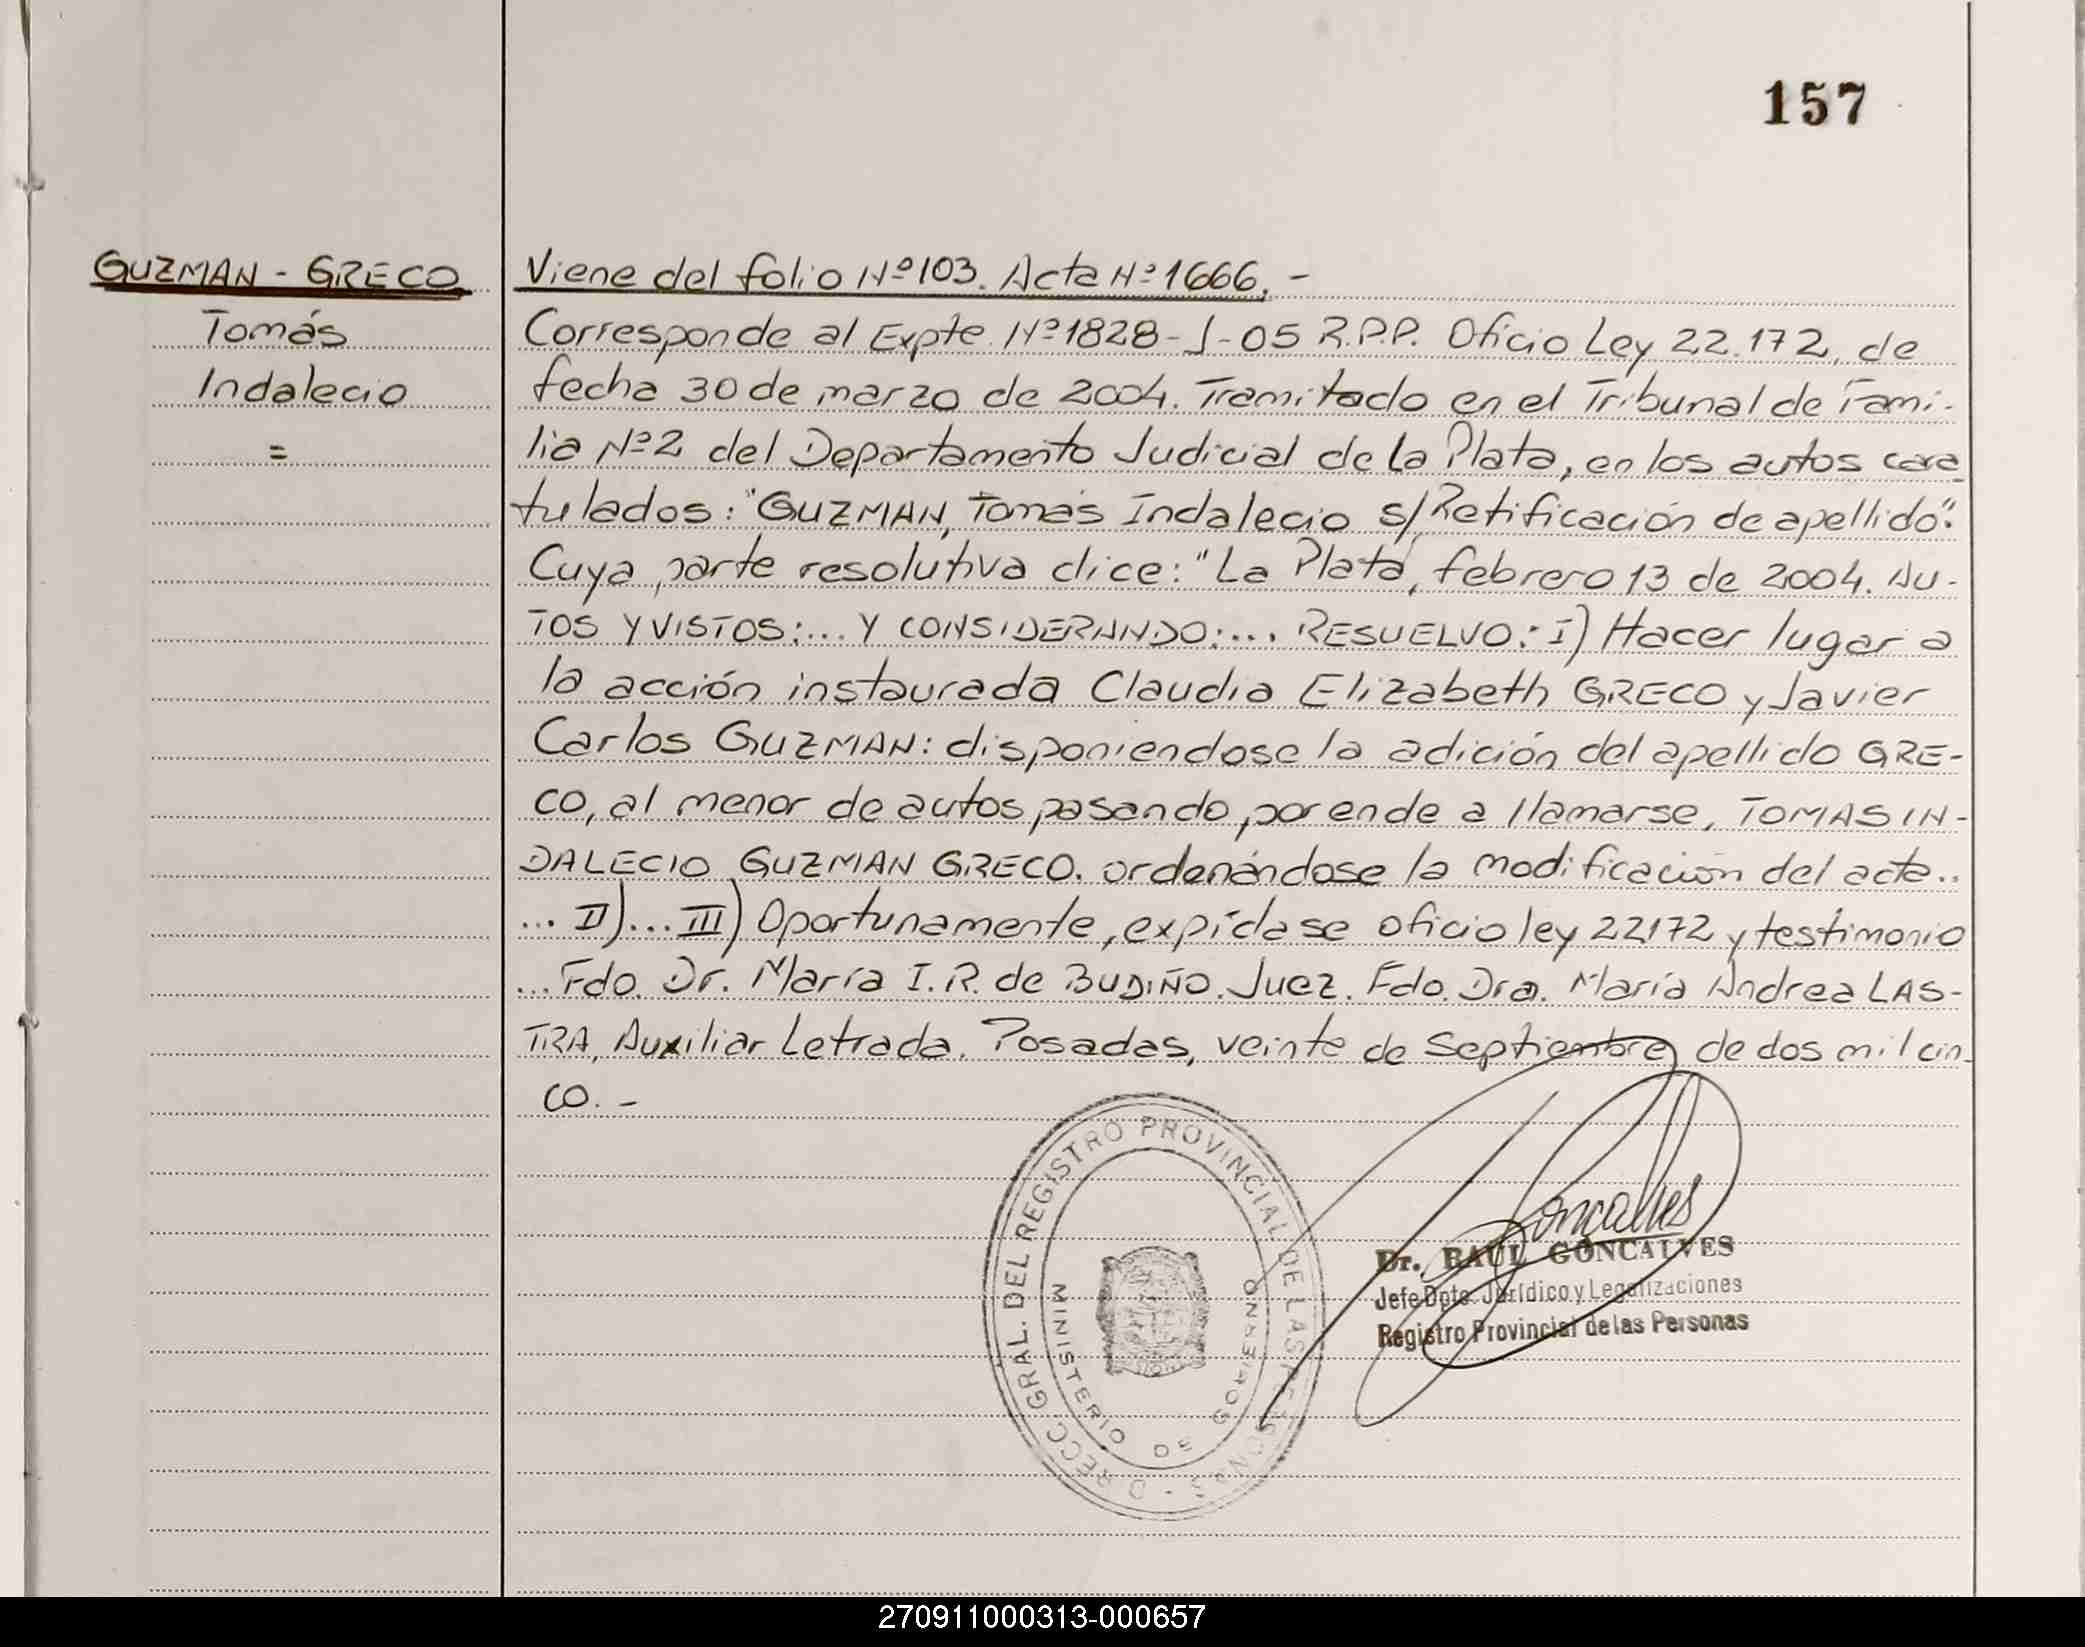 157
GUZMAN - GRECO
Tomás
Indalecio
=
Viene del folio Nº 103. Acta Nº 1666. -
Corresponde al Expte Nº 1828-J-05 R.P.P. Oficio Ley 22.172, de
fecha 30 de marzo de 2004. Tramitado en el Tribunal de Fami-
lia Nº 2 del Departamento Judicial de La Plata, en los autos cara
tulados: "GUZMAN, Tomás Indalecio s/Retificación de apellido".
Cuya parte resolutiva dice: "La Plata, febrero 13 de 2004. AU-
TOS Y VISTOS:... Y CONSIDERANDO:... RESUELVO: I) Hacer lugar a
la acción instaurada Claudia Elizabeth GRECO y Javier
Carlos GUZMAN: disponiendose la adición del apellido GRE-
CO, al menor de autos pasando, por ende a llamarse, TOMAS IN-
DALECIO GUZMAN GRECO. ordenándose la modificación del acta..
... II)... III) Oportunamente, expídase oficio ley 22172 y testimonio
... Fdo. Dr. María I. R. de BUDIÑO. Juez. Fdo. Dra. María Andrea LAS-
TRA, Auxiliar Letrada. Posadas, veinte de Septiembre de dos mil cin-
co. -
DIRECC. GRAL. DEL REGISTRO PROVINCIAL DE LAS PERSONAS -
MINISTERIO DE GOBIERNO
Goncalves
Dr. RAUL GONCALVES
Jefe Dpto. Jurídico y Legalizaciones
Registro Provincial de las Personas
270911000313-000657